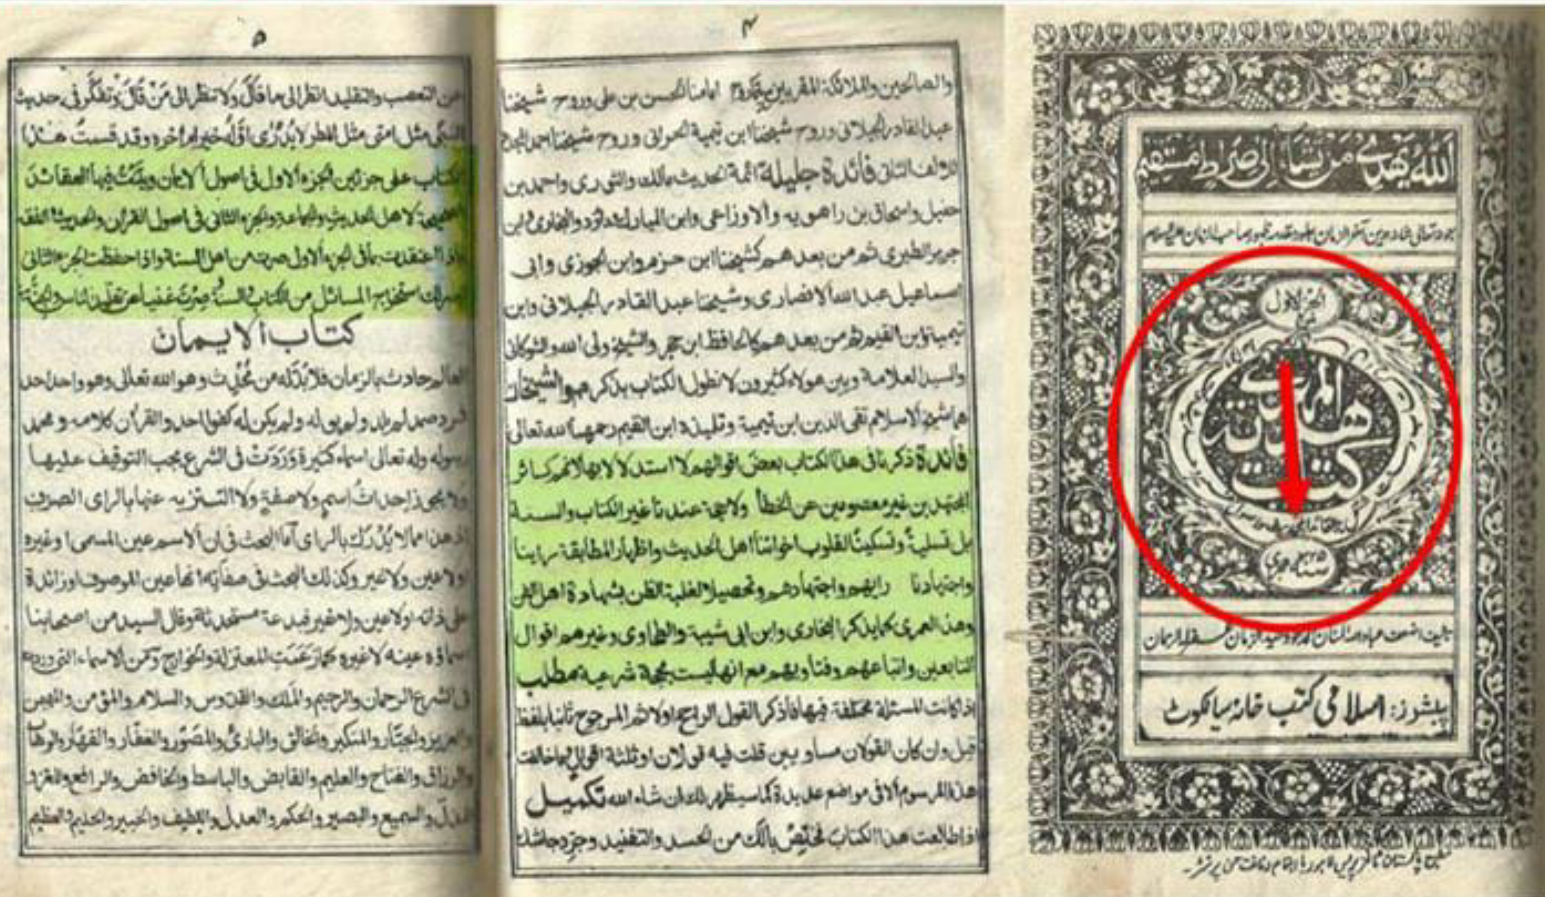 الله يهدي من يشاء الى صراط مستقيم
الجزء الاول
من
هدية
المهدي
كتاب
سنة ١٣٢٥ هجري
پبلشرز: اسلامی کتب خانہ سیالکوٹ
٤
والصالحين والملائكة المقربين امامنا الحسن بن علي وروح شيخنا
عبد القادر الجيلاني وروح شيخنا ابن تيمية الحراني وروح شيخنا احمد
فائدة جليلة ائمة الحديث مالك والثوري واحمد بن
حنبل واسحاق بن راهويه والاوزاعي وابن المبارك وداؤد والبخاري وابن
جرير الطبري ثم من بعدهم كشيخنا ابن حزم وابن الجوزي وابي
اسماعيل عبد الله الانصاري وشيخنا عبد القادر الجيلاني وابن
تيمية وابن القيم ثم من بعدهم كالحافظ ابن حجر والشيخ ولي الله والشوكاني
والسيد العلامة وبين هولاء كثيرون لا نطول الكتاب بذكرهم والشيخان
هما شيخ الاسلام تقي الدين ابن تيمية وتلميذه ابن القيم رحمهما الله تعالى
فائدة ذكرنا في هذا الكتاب بعض اقوالهم لا استدلالا بها لانهم كسائر
المجتهدين غير معصومين عن الخطأ ولا حجة عندنا غير الكتاب والسنة
بل تسلية وتسكينا لقلوب اخواننا اهل الحديث واظهار المطابقة راينا
واجتهادنا رايهم واجتهادهم وتحصيلا لغلبة الظن بشهادة اهل الفن
وهذا لعمري كما يذكر البخاري وابن ابي شيبة والطحاوي وغيرهم اقوال
التابعين واتباعهم وفتاويهم مع انها ليست بحجة شرعية مطلب
اذا كانت المسئلة مختلفة فيها فاذكر القول الراجح اولا ثم المرجوح ثانيا بلفظ
قيل وان كان القولان مساويين قلت فيه قولان او ثلثة اقوال
هذا المرسوم الا في مواضع عديدة كما سيظهر لك ان شاء الله تكميل
اذا طالعت هذا الكتاب بالك من الحسد والتفنيد
٥
عن التعصب والتقليد انظر الى ما قال ولا تنظر الى من قال وتفكر في حديث
النبي مثل امتي مثل المطر لا يدرى اوله خير ام اخره وقد قسمت هذا
الكتاب على جزئين الجزء الاول في اصول الايمان وبينت فيها العقائد
الصحيحة لاهل الحديث والجماعة والجزء الثاني في اصول القران والحديث والفقه
فاذا اعتقدت بما في الجزء الاول صرت من اهل السنة واذا حفظت الجزء الثاني
استخراج المسائل من الكتاب والسنة وصرت غنيا عن تقليد
كتاب الايمان
العالم حادث بالزمان فلا بد له من محدث وهو الله تعالى وهو واحد احد
فرد صمد لم يلد ولم يولد ولم يكن له كفوا احد والقران كلامه ومحمد
رسوله وله تعالى اسماء كثيرة وردت في الشرع يجب التوقيف عليها
ولا يجوز احداث اسم ولا صفة ولا التنزيه عنها بالراي الصرف
اذ هذا مما لا يدرك بالراي اما البحث في ان الاسم عين المسمى او غيره
او لا عين ولا غير وكذلك البحث في صفاته انها عين الموصوف او زائدة
على ذاته او لا عين ولا غير فبدعة مستحدثة وقال السيد من اصحابنا
اسماؤه عينه لا غيره كما زعمت المعتزلة والخوارج ومن الاسماء التي وردت
في الشرع الرحمان والرحيم والملك والقدوس والسلام والمؤمن والمهيمن
والعزيز والجبار والمتكبر والخالق والبارئ والمصور والغفار والقهار والوهاب
والرزاق والفتاح والعليم والقابض والباسط والخافض والرافع والمعز
المذل والسميع والبصير والحكم والعدل واللطيف والخبير والحليم والعظيم